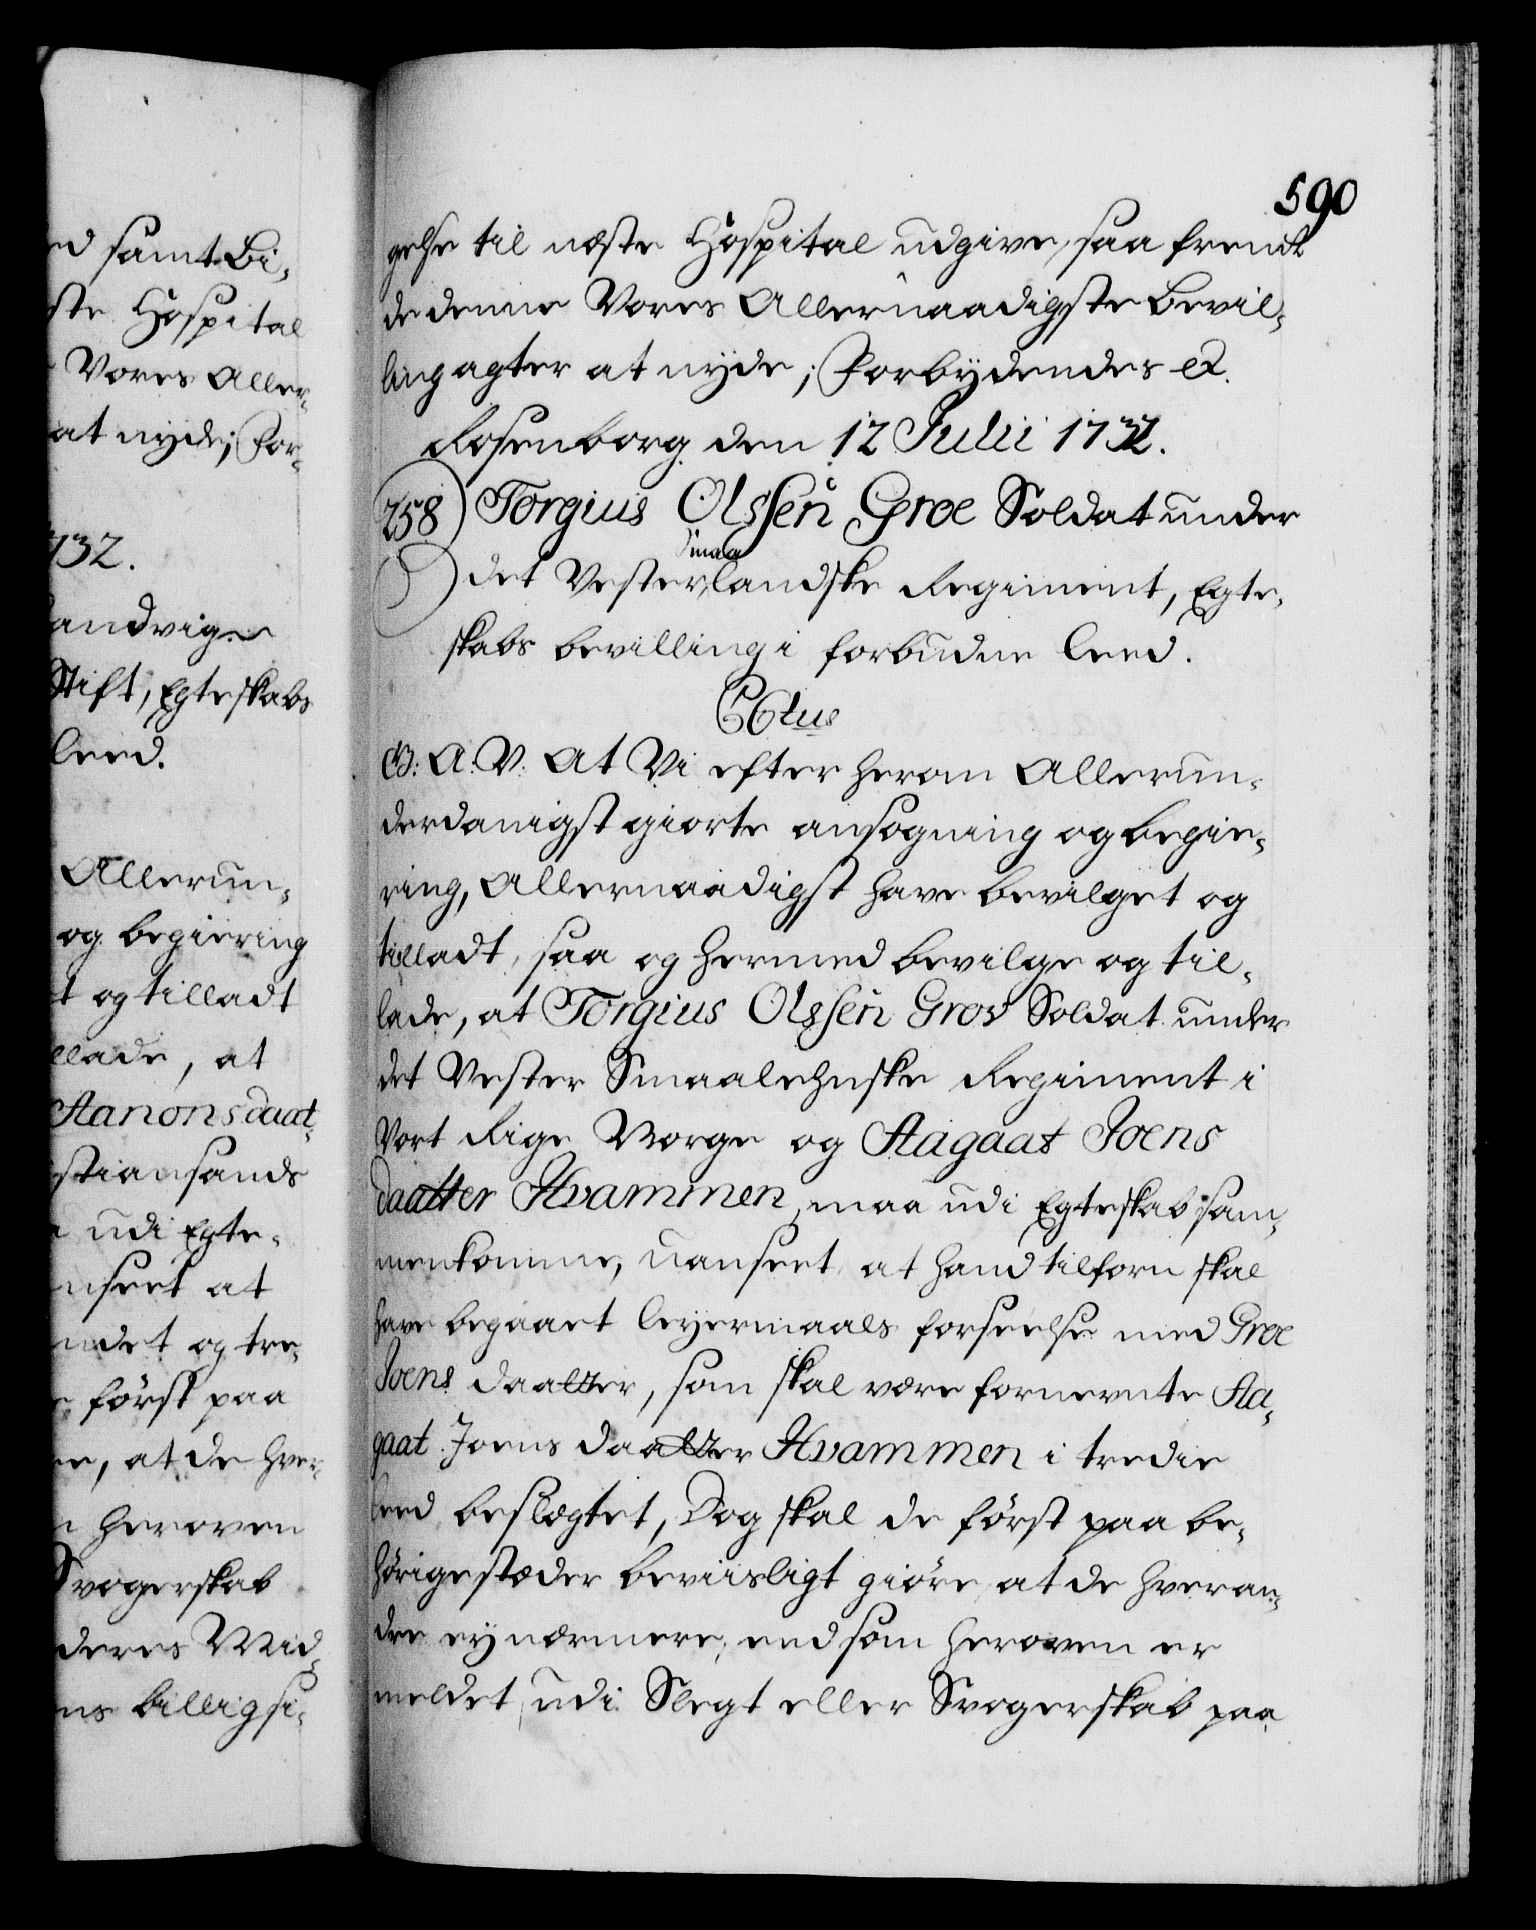 ed samt Bi-
ste Hospital
Vores Aller-
at nyde; For-
732.
andvigen
Stift, Egteskabs
leed.
Allerun-
og begiering
t og tilladt
llade, at
Aanonsdaat-
stiansands
udi Egte-
nseet at
ndet og tre-
først paa
re, at de hver-
n heroven
Svogerskab
deres Mid-
ns billig si-
590
gelse til næste Hospital udgive, saa fremt
de denne Vores Allernaadigste bevil-
ling agter at nyde; Forbydendes etc.
Rosenborg den 12 Julii 1732.
258) Torgius Olssen Groe Soldat under
det Vester Smaalandske Regiment, Egte-
skabs bevilling i forbudne leed.
C6tus
G: A: V: At Vi efter herom Allerun-
derdanigst giorte ansøgning og begie-
ring, Allernaadigst have bevilget og
tilladt, saa og hermed bevilge og til-
lade, at Torgius Olssen Grov Soldat under
det Vester Smaalehnske Regiment i
Vort Rige Norge og Aagaat Joens
daatter Hvammen, maa udi Egteskab sam-
menkomme, uanseet at hand tilforn skal
have begaaet leyermaals forseelse med Groe
Joens daatter, som skal være fornevnte Aa-
gaat Joens daatter Hvammen i tredie
leed beslægtet, Dog skal de først paa be-
hørige stæder beviisligt giøre, at de hveran-
dre ey nærmere, end som heroven er
meldet, udi Slegt eller Svogerskab paa